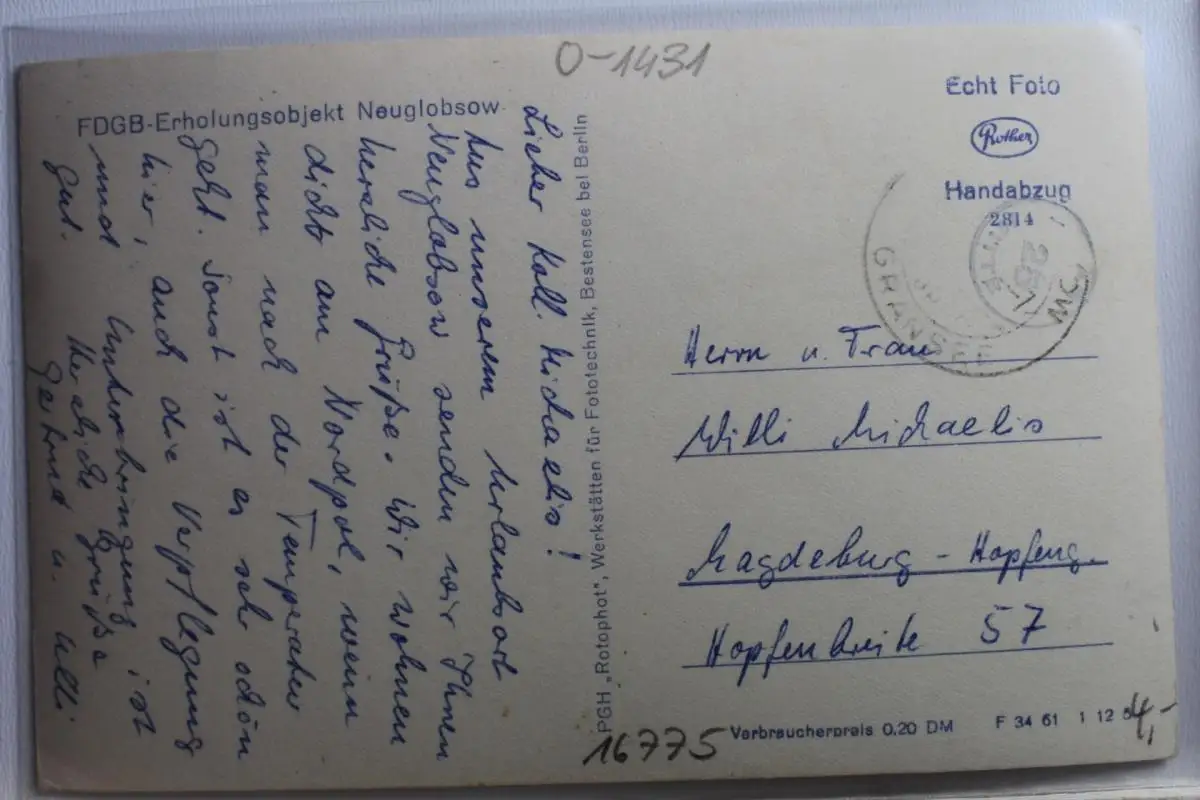 O-1431
FDGB-Erholungsobjekt Neuglobsow
Lieber Koll. Michaelis!
Aus unserem Urlaubsort
Neuglobsow senden wir Ihnen
herzliche Grüße. Wir wohnen
dicht am Nordpol, wenn
man nach der Temperatur
geht. Sonst ist es sehr schön
hier, auch die Verpflegung
und Unterbringung ist
gut. Herzliche Grüße
Gertrud u. Willi
PGH „Rotophot", Werkstätten für Fototechnik, Bestensee bei Berlin
Echt Foto
Rother
Handabzug
2814
GRANSEE
Herrn u. Frau
Willi Michaelis
Magdeburg - Hopfeng.
Hopfenbreite 57
Verbraucherpreis 0,20 DM F 34 61 1 12
4,-
16775